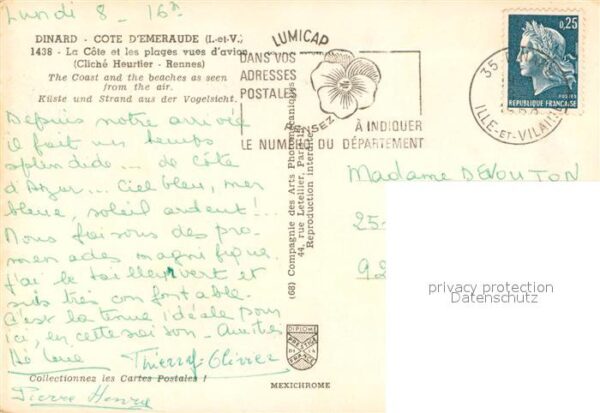 Lundi 8 - 16h
DINARD - COTE D'EMERAUDE (I.-et-V.)
1438 - La Côte et les plages vues d'avion
(Cliché Heurtier - Rennes)
The Coast and the beaches as seen
from the air.
Küste und Strand aus der Vogelsicht.
Depuis notre arrivée
il fait un temps
splendide... de côte
d'Azur... Ciel bleu, mer
bleue, soleil ardent!...
Nous faisons des pro-
menades magnifiques.
J'ai le tailleur vert et
suis très confortable.
C'est la tenue idéale pour
ici, en cette saison - Amitiés
Thierry-Olivier
Collectionnez les Cartes Postales !
Pierre Henry
(68) Compagnie des Arts Photomécaniques
44, rue Letellier, Paris
Reproduction interdite
DIPLOME
PRESTIGE
DE LA
FRANCE
MEXICHROME
LUMICAP
DANS VOS
ADRESSES
POSTALES
PENSEZ
À INDIQUER
LE NUMÉRO DU DÉPARTEMENT
0,25
POSTES
REPUBLIQUE FRANÇAISE
35
ILLE-ET-VILAINE
Madame DEVOUTON
25-
92
privacy protection
Datenschutz